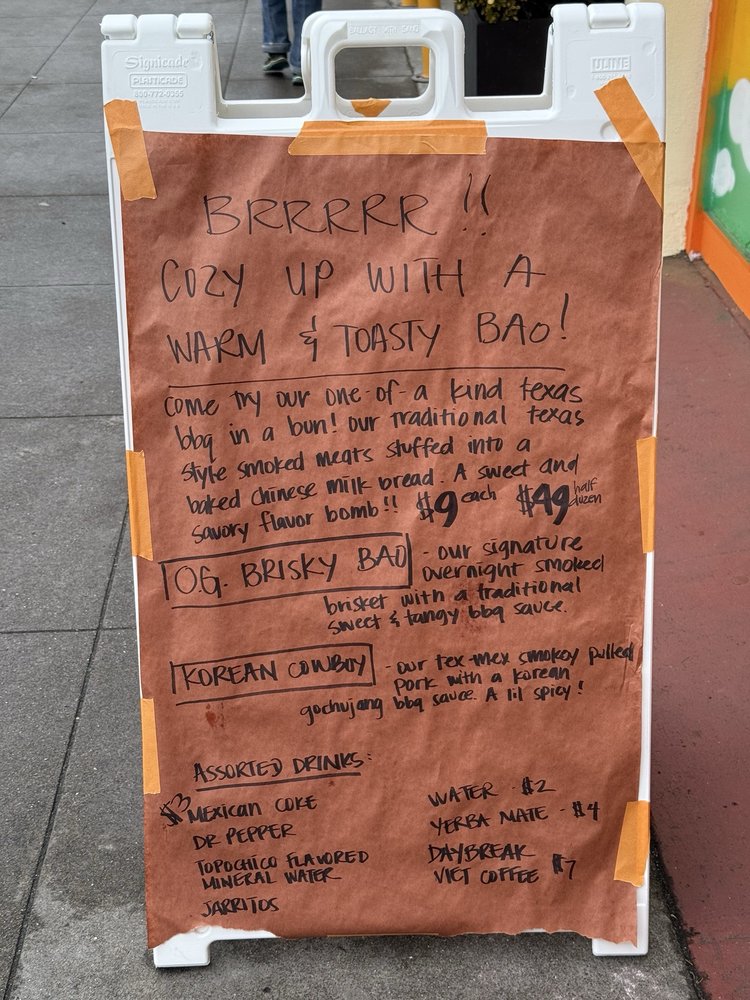 BALLAST WITH SAND
Signicade
PLASTICADE
800-772-0355
ULINE
BRRRRR!!
COZY UP WITH A
WARM & TOASTY BAO!
come try our one-of-a kind texas
bbq in a bun! our traditional texas
style smoked meats stuffed into a
baked chinese milk bread. A sweet and
savory flavor bomb!! $9 each $49 half dozen
O.G. BRISKY BAO - our signature
overnight smoked
brisket with a traditional
sweet & tangy bbq sauce.
KOREAN COWBOY - our tex-mex smokey pulled
pork with a korean
gochujang bbq sauce. A lil spicy!
ASSORTED DRINKS:
$3 MEXICAN COKE
DR PEPPER
TOPOCHICO FLAVORED
MINERAL WATER
JARRITOS
WATER - $2
YERBA MATE - $4
DAYBREAK
VIET COFFEE $7